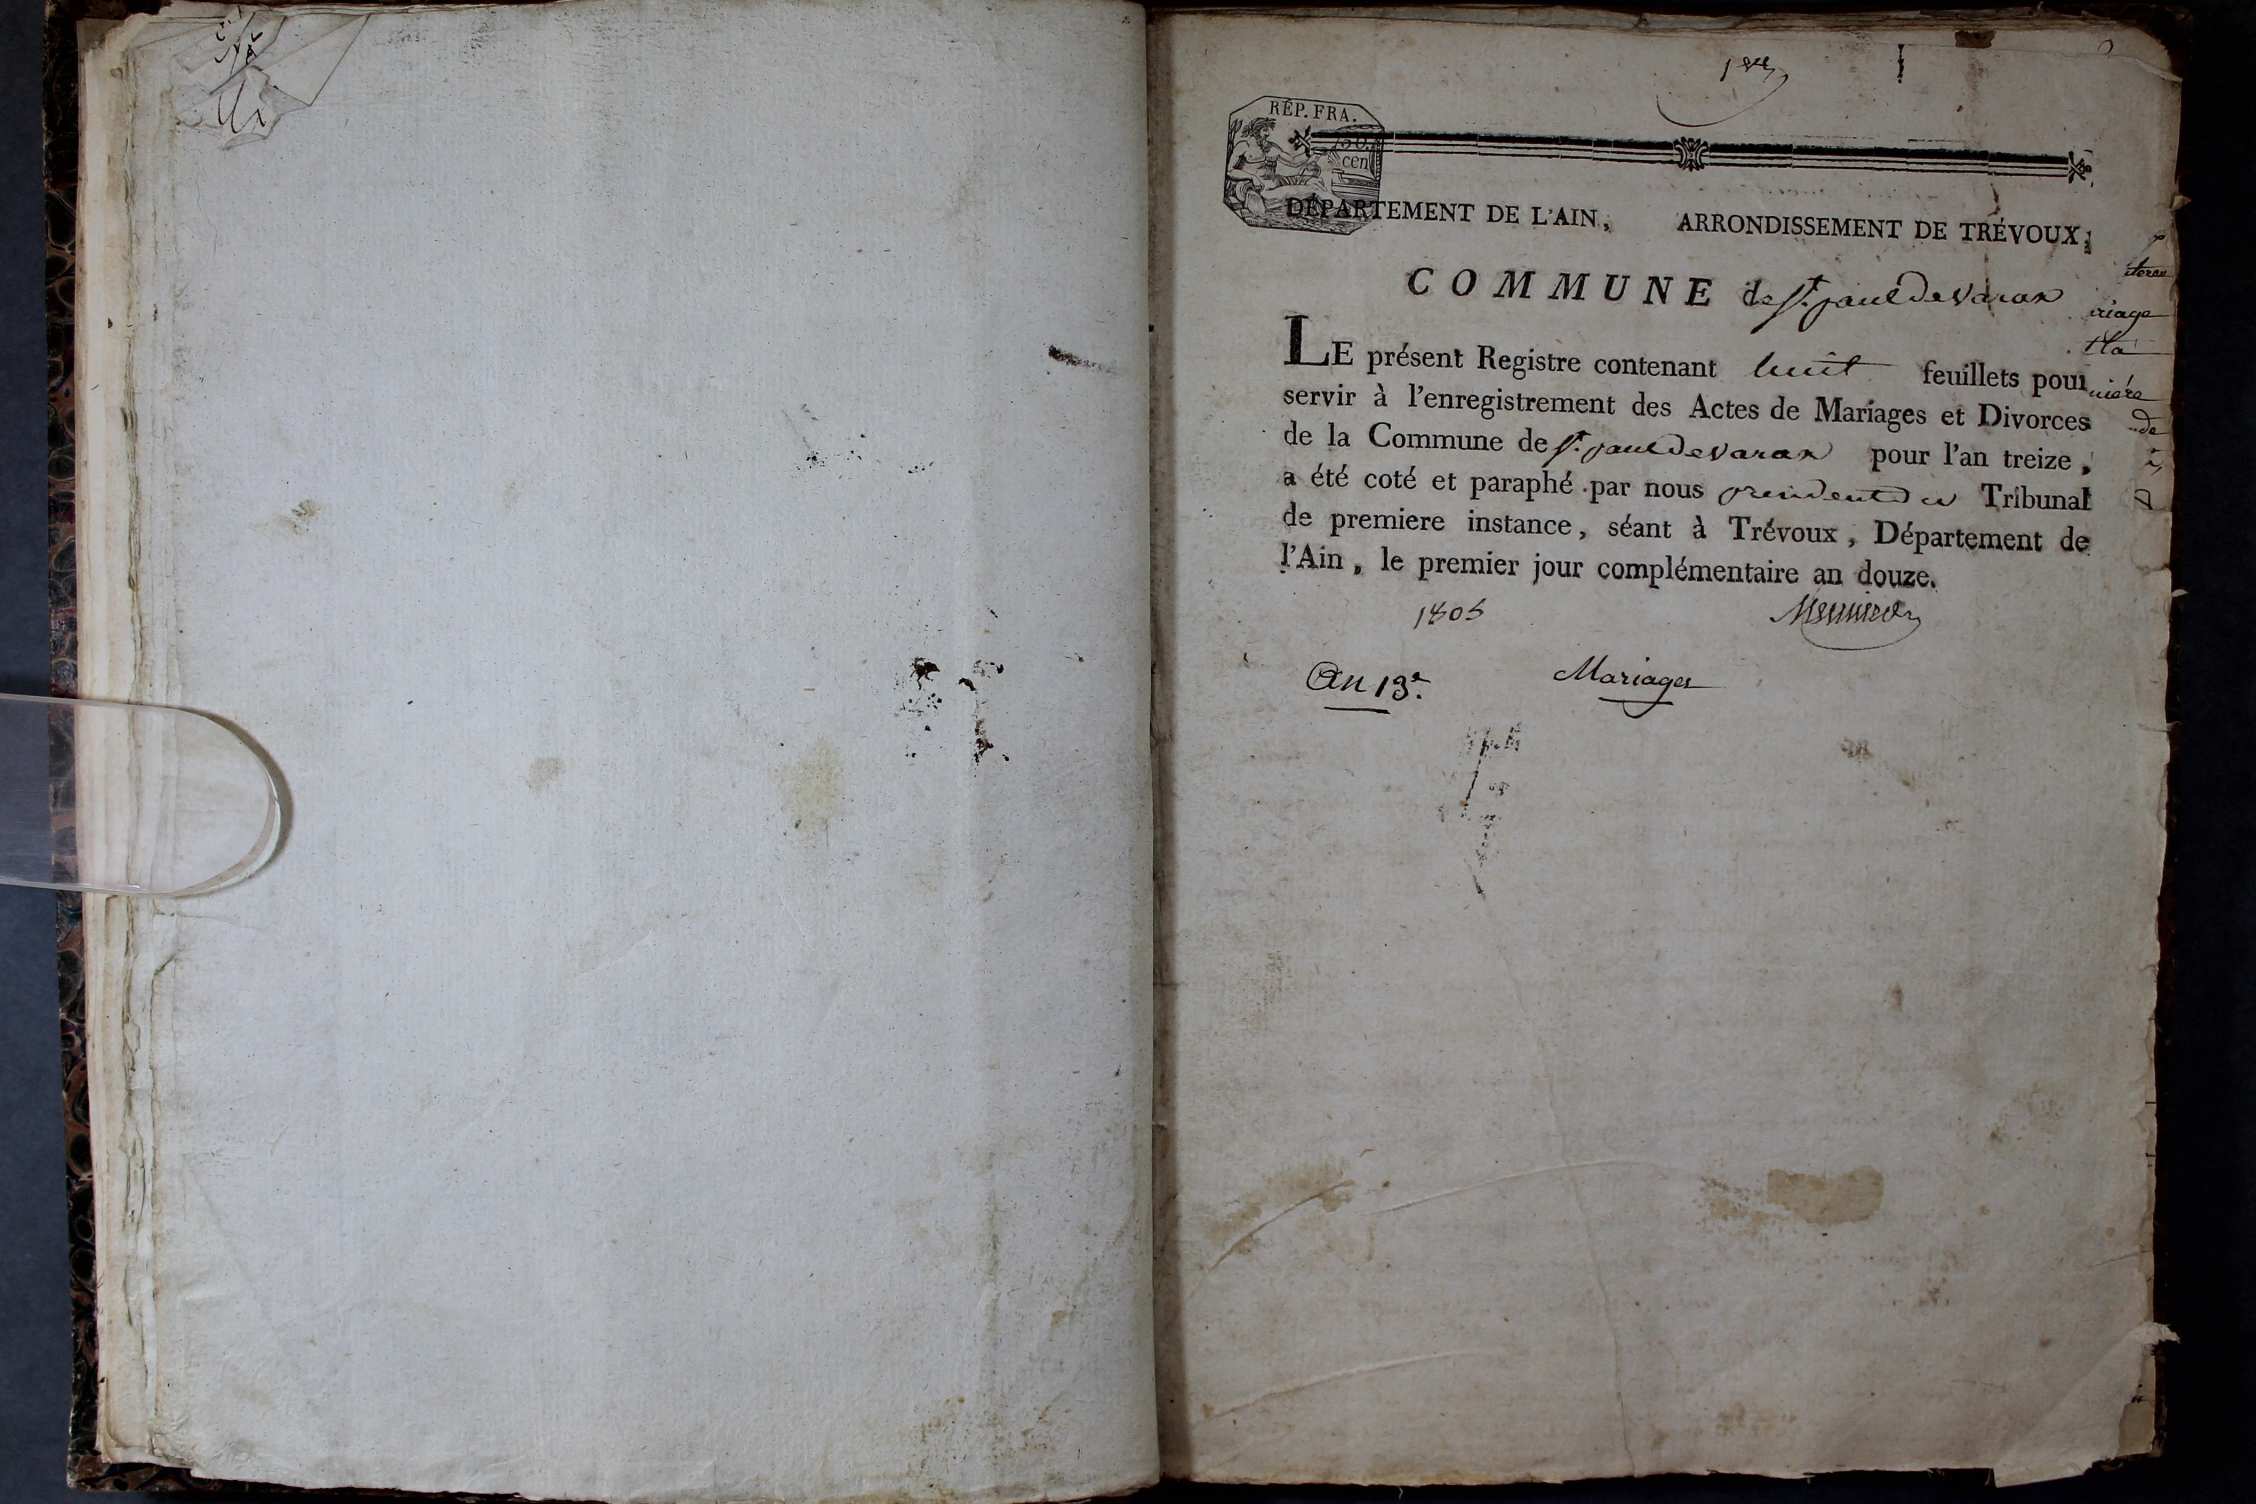 1er
RÉP. FRA.
50.
cen
DÉPARTEMENT DE L'AIN, ARRONDISSEMENT DE TRÉVOUX,
COMMUNE de St. paul de varax
LE présent Registre contenant huit feuillets pour
servir à l'enregistrement des Actes de Mariages et Divorces
de la Commune de St. paul de varax pour l'an treize,
a été coté et paraphé par nous president du Tribunal
de premiere instance, séant à Trévoux, Département de
l'Ain, le premier jour complémentaire an douze.
1805
An 13e. Mariages